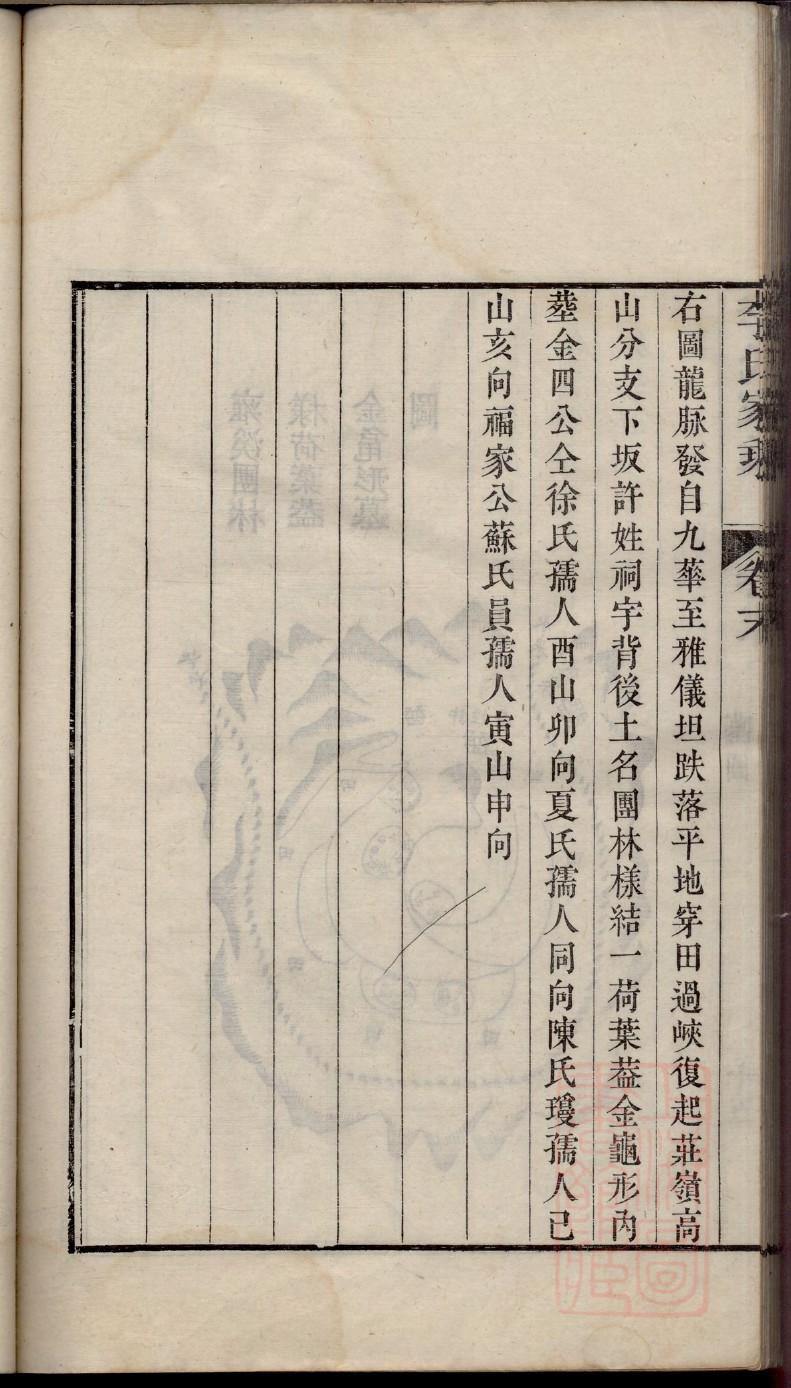 右圖龍脉發自九華至雅儀坦跌落平地穿田過峽復起莊嶺高
山分支下坂許姓祠宇背後土名團林樣結一荷葉葢金龜形內
塟金四公仝徐氏孺人酉山卯向夏氏孺人同向陳氏瓊孺人已
山亥向福家公蘇氏員孺人寅山申向
李氏家乘
卷末